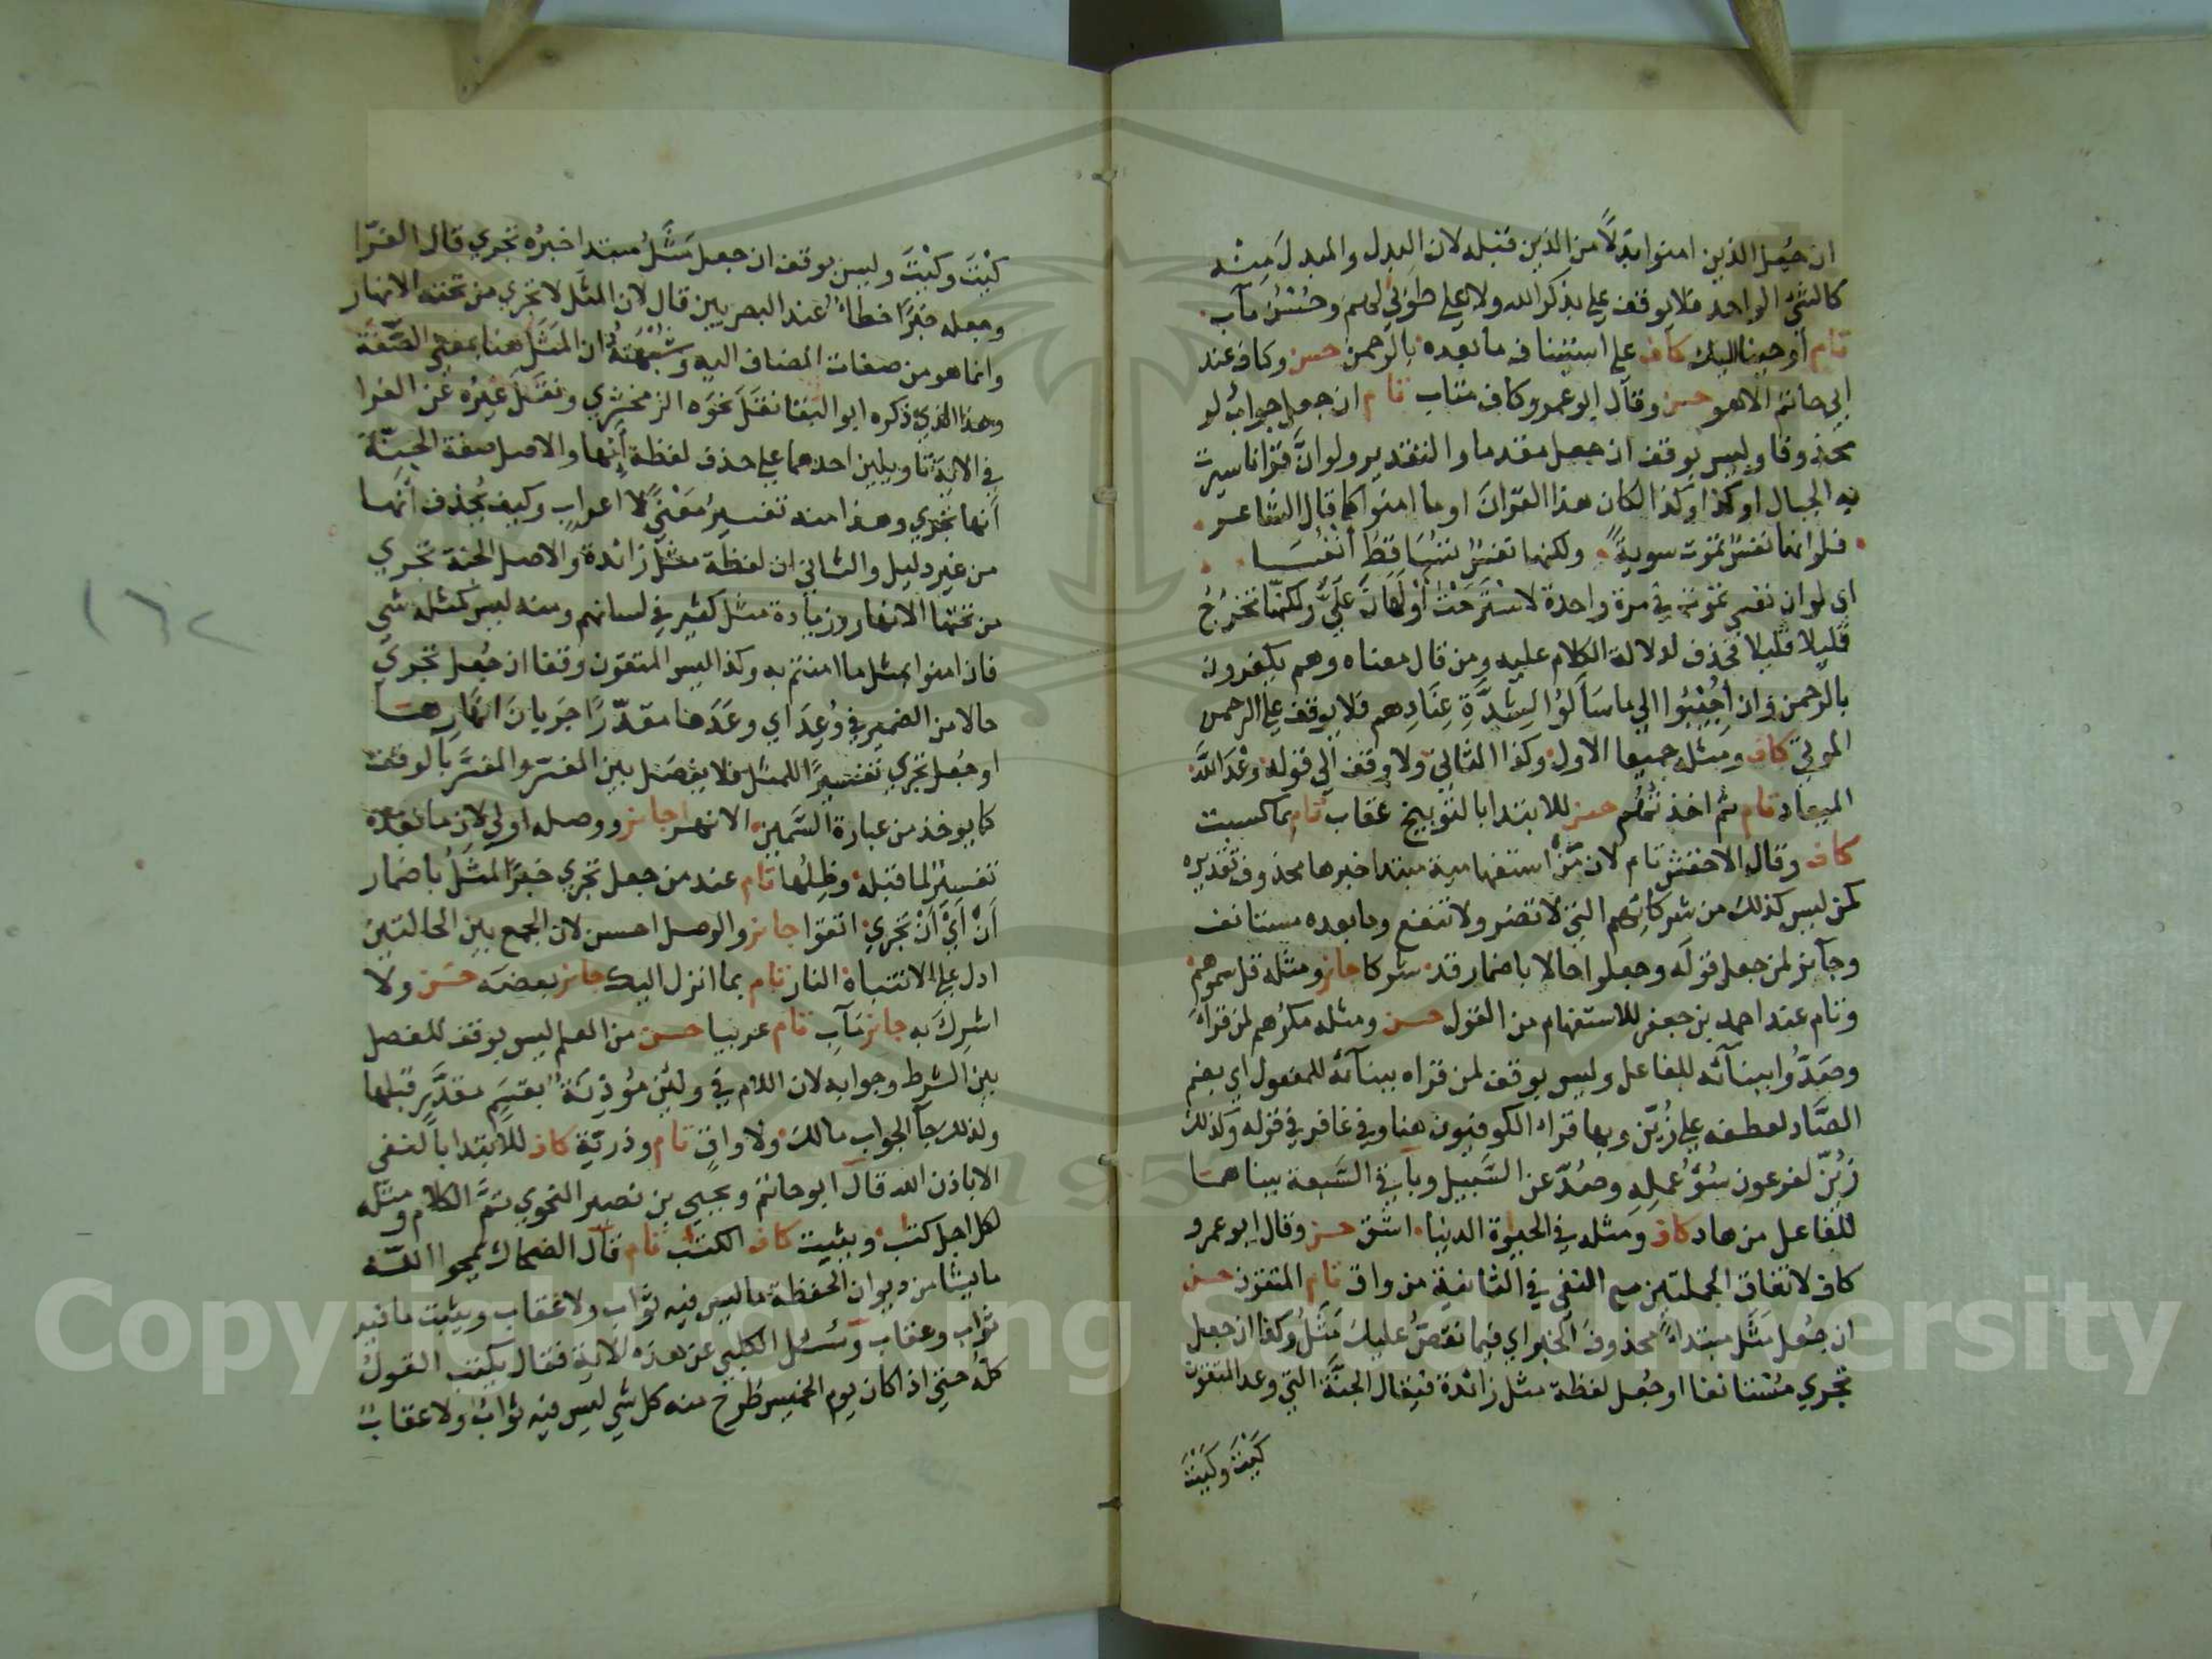 ان جُعِل الذين امنوا بَدَلاً من الذين قبله لان البدل والمبدل منه
كالشئ الواحد فلا يوقف علي بذكر الله ولا علي طوبي لهم وحُسْنُ مآب
تام اوحينا اليك كاف علي استيناف ما بعده بالرحمن حسن وكاف عند
ابي حاتم الا هو حسن وقال ابو عمرو كاف متاب تام ان جعل جواب لو
محذوفا وليس بوقف ان جعل مقدما والتقدير ولو انَّ قرانا سيرت
به الجبال او كذا وكذا لكان هذا القرآنَ او ما امنوا كما قال الشاعر
فلو انها نفسٌ تموت سويةً ولكنها نفسٌ تَسَاقَطُ أَنْفُسَا
اي لو ان نفسي تموت في مرة واحدة لاسْتَرَحْتُ أَوْ لَهَانَ عَلَيَّ ولكنها تخرُجُ
قليلا قليلا فحذف لدلالة الكلام عليه ومن قال معناه وهم يكفرون
بالرحمن وان أُجِيْبُوا الي ما سَأَلُوا لِشِدَّةِ عِنَادِهم فلا يوقف علي الرحمن
الموتي كاف ومثله جميعا الاول وكذا الثاني ولا وقف الي قوله وعْدَ اللَّه
الميعاد تام ثم اخذتهم حسن للابتدا بالتوبيخ عقاب تام بما كسبت
كاف وقال الاخفش تام لان مَنْ استفهامية مبتدا خبرها محذوف تقديره
كمن ليس كذلك من شركائهم التي لا تضر ولا تنفع وما بعده مستانف
وجآئز لمن جعل قوله وجعلوا حالا باضمار قد شركا جائز ومثله قل سموهم
وتام عند احمد بن جعفر للاستفهام من القول حسن ومثله مكرُهم لمن قراه
وصَدُّوا ببنآئه للفاعل وليس بوقف لمن قراه ببنآئه للمفعول اي بضم
الصَّاد لعطفه علي زُيِّن وبها قراء الكوفيون هنا وفي غافر في قوله وكذلك
زُيِّن لفرعون سُوُّ عملِه وصُدّ عن السَّبيل وباقي السَّبعة ببناهما
للفاعل من هاد كاف ومثله في الحيوة الدنيا اشق حسن وقال ابو عمرو
كاف لاتفاق الجملتين مع النفي في الثانية من واق تام المتقون حسن
ان جُعل مَثَل مبتداً محذوفَ الخبر اي فيما نقصُّ عليك مَثَلُ وكذا ان جعل
تجري مُسْتانفا او جُعل لفظة مثل زائدة فيقال الجنَّة التي وعد المتقون
كَيْتَ وكَيْتَ
كَيْتَ وكَيْتَ وليس بوقف ان جعل مَثَلُ مبتدا خبرُه تجري قال الفرّا
وجعله خبرًا خطاءٌ عند البصريين قال لان المثَل لا تجري من تحته الانهار
وانما هو من صفات المضاف اليه وشُبْهَتُهُ ان المَثَل هنا بمعني الصِّفة
وهذا الذي ذكره ابو البقا نقَلَ نحوَه الزمخشري ونقَل غيرُه عن الفرا
في الاية تاويلين احدهما علي حذف لفظة أنَّها والاصل صفة الجنَّة
أنها تجري وهذا منه تفسيرُ مَعْنًي لا اعرابٍ وكيف يُحذف أنها
من غير دليل والثاني ان لفظة مثل زائدة والاصل الجنة تجري
من تحتها الانهار وزيادة مثل كثير في لسانهم ومنه ليس كمثله شي
فان امنوا بمثل ما امنتم به وكذا ليس المتقون وقفا ان جُعل تجري
حالا من الضمير في وُعِدَ اي وعَدَها مقدّرًا جَريانَ انهارِها
او جُعل تجري تفسيرًا للمثل فلا يفصَل بين المفسّر والمفسَّر بالوقف
كما يوخذ من عبارة السَّمين الانهر جائز ووصله اولي لان ما بعده
تفسيرٌ لما قبله وظِلُها تام عند من جعل تجري خبرًا لمثَلُ باضمار
أنْ أيْ أنْ تجري اتقوا جائز والوصل احسن لان الجمع بين الحالتين
ادل علي الانتباه النار تام بما انزل اليك جائز بعضَه حسَن ولا
اشرِكَ به جائز مَآبِ تام عربيا حسن من العلم ليس بوقف للفصل
بين الشرط وجوابه لان اللام في ولئن مُؤذِنَةٌ بقَسَمٍ مقدَّرٍ قبلها
ولذلك جآ الجواب مالك ولا واقٍ تام وذريّة كاف للابتدا بالنفي
الا باذن الله قال ابو حاتم ويحيي بن نصير النحوي تمَّ الكلام ومثله
لكل اجل كتٰب ويثبت كاف الكتٰب تام قال الضحاك يمحوا اللَّه
ما يشا من ديوان الحفظة ما ليس فيه ثواب ولا عقاب ويثبت ما فيه
ثواب وعقاب وسُئل الكلبي عن هذه الاية فقال يكتب القولُ
كلُّه حتي اذا كان يوم الخميس طُرِحَ منه كل شي ليس فيه ثوابٌ ولا عقابٌ
١٦٢
1957
Copyright © King Saud University